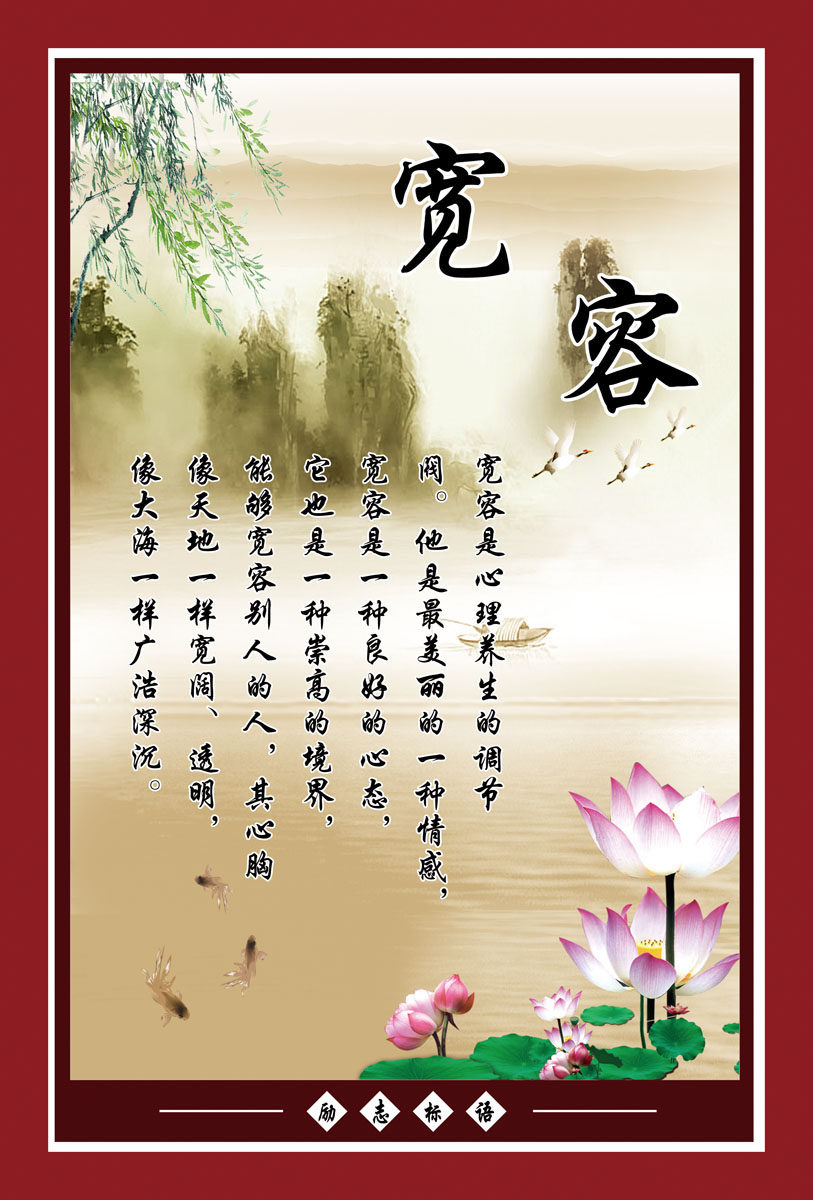 宽容
宽容是心理养生的调节
阀。他是最美丽的一种情感，
宽容是一种良好的心态，
它也是一种崇高的境界，
能够宽容别人的人，其心胸
像天地一样宽阔、透明，
像大海一样广浩深沉。
励志标语